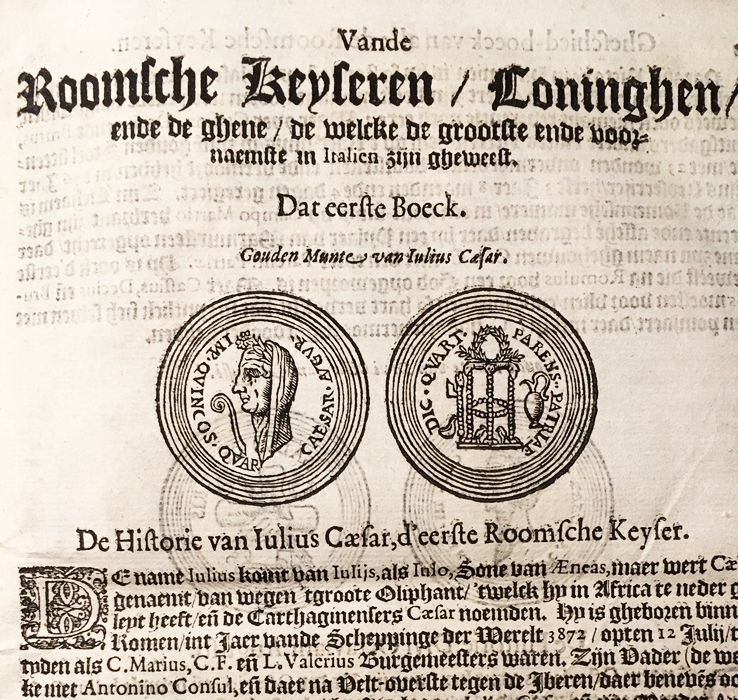 Vande
Roomsche Keyseren / Coninghen /
ende de ghene / de welcke de grootste ende voor-
naemste in Italien zijn gheweest.
Dat eerste Boeck.
Gouden Munte van Iulius Cæsar.
IMP. QVINC
SO. QVAR
CAESAR. AVGVR.
DIC. QVART. PARENS. PATRIAE
De Historie van Iulius Cæsar, d'eerste Roomsche Keyser.
DE name Iulius komt van Iulijs, als Iulo, Sone van Æneas, maer wert Cæ
genaemt / van wegen 'tgroote Oliphant / 'twelck hy in Africa te neder g
leyt heeft / eñ de Carthaginensers Cæsar noemden. Hy is gheboren binn
Romen / int Jaer vande Scheppinge der Werelt 3872 / opten 12 Julij / t
tyden als C. Marius, C. F. eñ L. Valerius Burgemeesters waren. Zijn Vader (de we
ke met Antonino Consul, eñ daer na Velt-overste tegen de Iberen / daer beneves oo